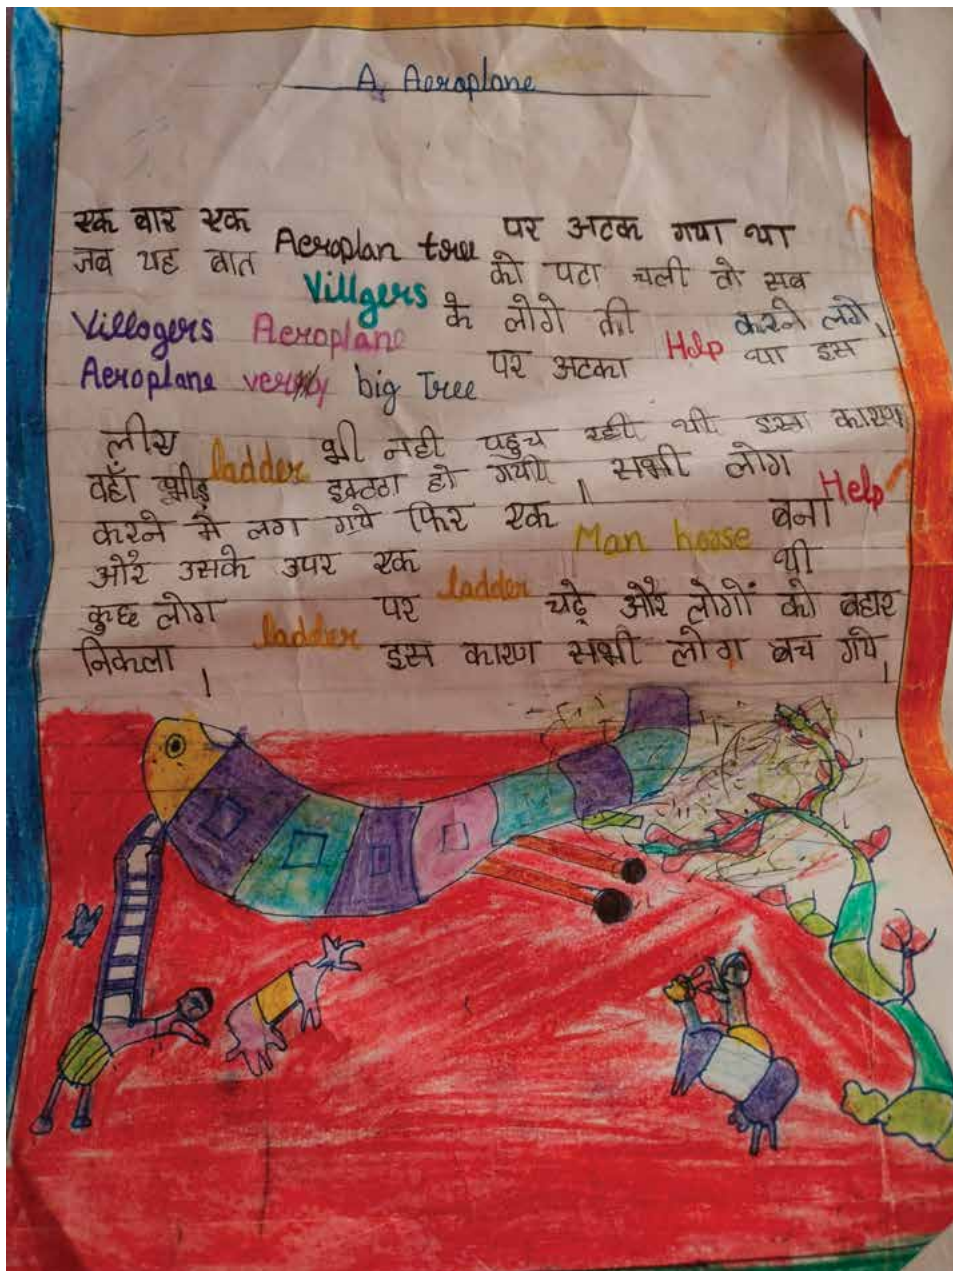 A Aeroplane
एक बार एक Aeroplan tree पर अटक गया था
जब यह बात Villgers को पता चली तो सब
Villogers Aeroplane के लोगे की Help करने लगे।
Aeroplane very big Tree पर अटका था इस
लीए ladder भी नही पहुच रही थी इस कारण
वहाँ भीड़ इकटठा हो गयी। सभी लोग Help
करने मे लग गये फिर एक Man hoose बना
और उसके उपर एक ladder थी
कुछ लोग ladder पर चढ़े और लोगों को बहार
निकला। इस कारण सभी लोग बच गये।